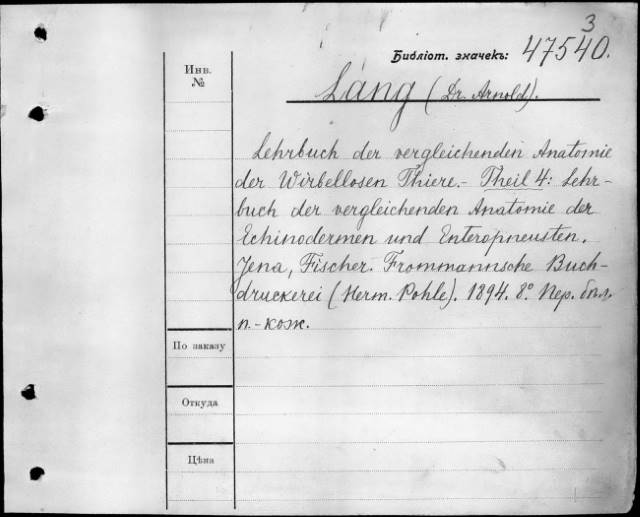 3
Библіот. значекъ: 47540.
Инв.
№
Lang (Dr. Arnold).
Lehrbuch der vergleichenden Anatomie
der Wirbellosen Thiere.- Theil 4: Lehr-
buch der vergleichenden Anatomie der
Echinodermen und Enteropneusten.
Jena, Fischer. Frommannsche Buch-
druckerei (Herm. Pohle). 1894. 8º. Пер.
п.-кож.
По заказу
Откуда
Цѣна